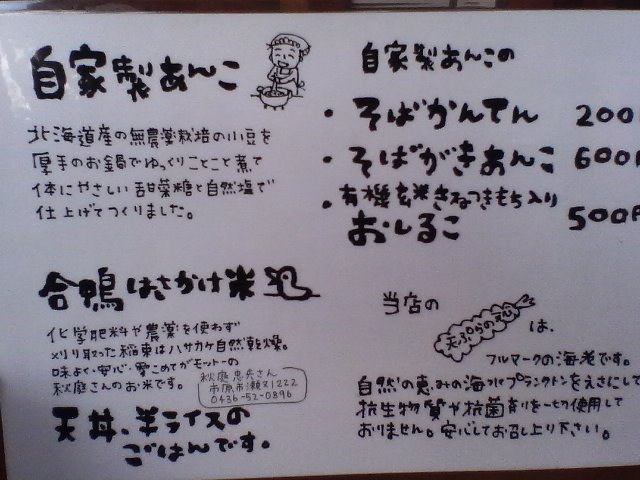 自家製あんこ
北海道産の無農薬栽培の小豆を
厚手のお鍋でゆっくりことこと煮て
体にやさしい甜菜糖と自然塩で
仕上げてつくりました。
自家製あんこの
・そばかんてん 200円
・そばがきあんこ 600円
・有機玄米きねつきもち入り
おしるこ 500円
合鴨はさかけ米
化学肥料や農薬を使わず
刈り取った稲束はハサカケ自然乾燥。
味よく・安心・愛こめてがモットーの
秋庭さんのお米です。
秋庭忠央さん
市原市瀬又1222
0436-52-0896
天丼、半ライスの
ごはんです。
当店の
天ぷらの海老
は、
フルマークの海老です。
自然の恵みの海のプランクトンをえさにして
抗生物質や抗菌剤を一切使用して
おりません。安心してお召し上り下さい。